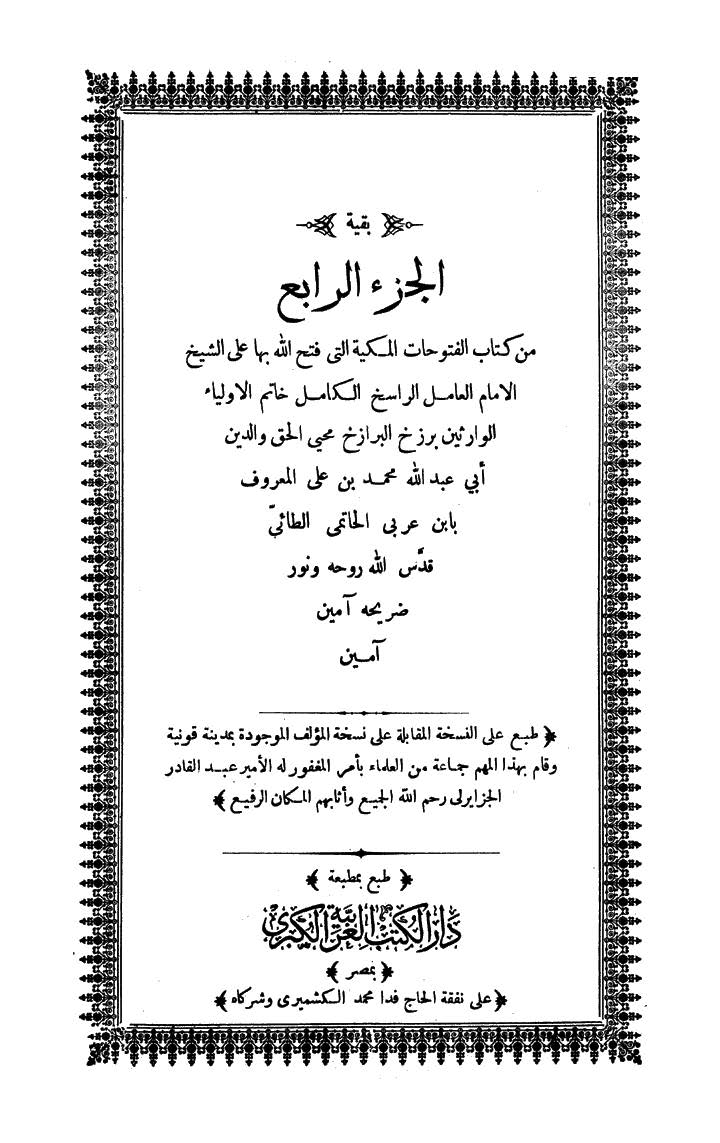 بقية
الجزء الرابع
من كتاب الفتوحات المكية التى فتح الله بها على الشيخ
الامام العامل الراسخ الكامل خاتم الاولياء
الوارثين برزخ البرازخ محيى الحق والدين
أبي عبد الله محمد بن على المعروف
بابن عربى الحاتمى الطائىّ
قدَّس الله روحه ونور
ضريحه آمين
آمين
﴿ طبع على النسخة المقابلة على نسخة المؤلف الموجودة بمدينة قونية
وقام بهذا المهم جماعة من العلماء بأمر المغفور له الأمير عبد القادر
الجزايرلى رحم الله الجميع وأثابهم المكان الرفيع ﴾
﴿ طبع بمطبعة ﴾
دَارُ الكُتُبُ العَرَبِيَّة الكُبْرَى
﴿ بمصر ﴾
﴿ على نفقة الحاج فدا محمد الكشميرى وشركاه ﴾